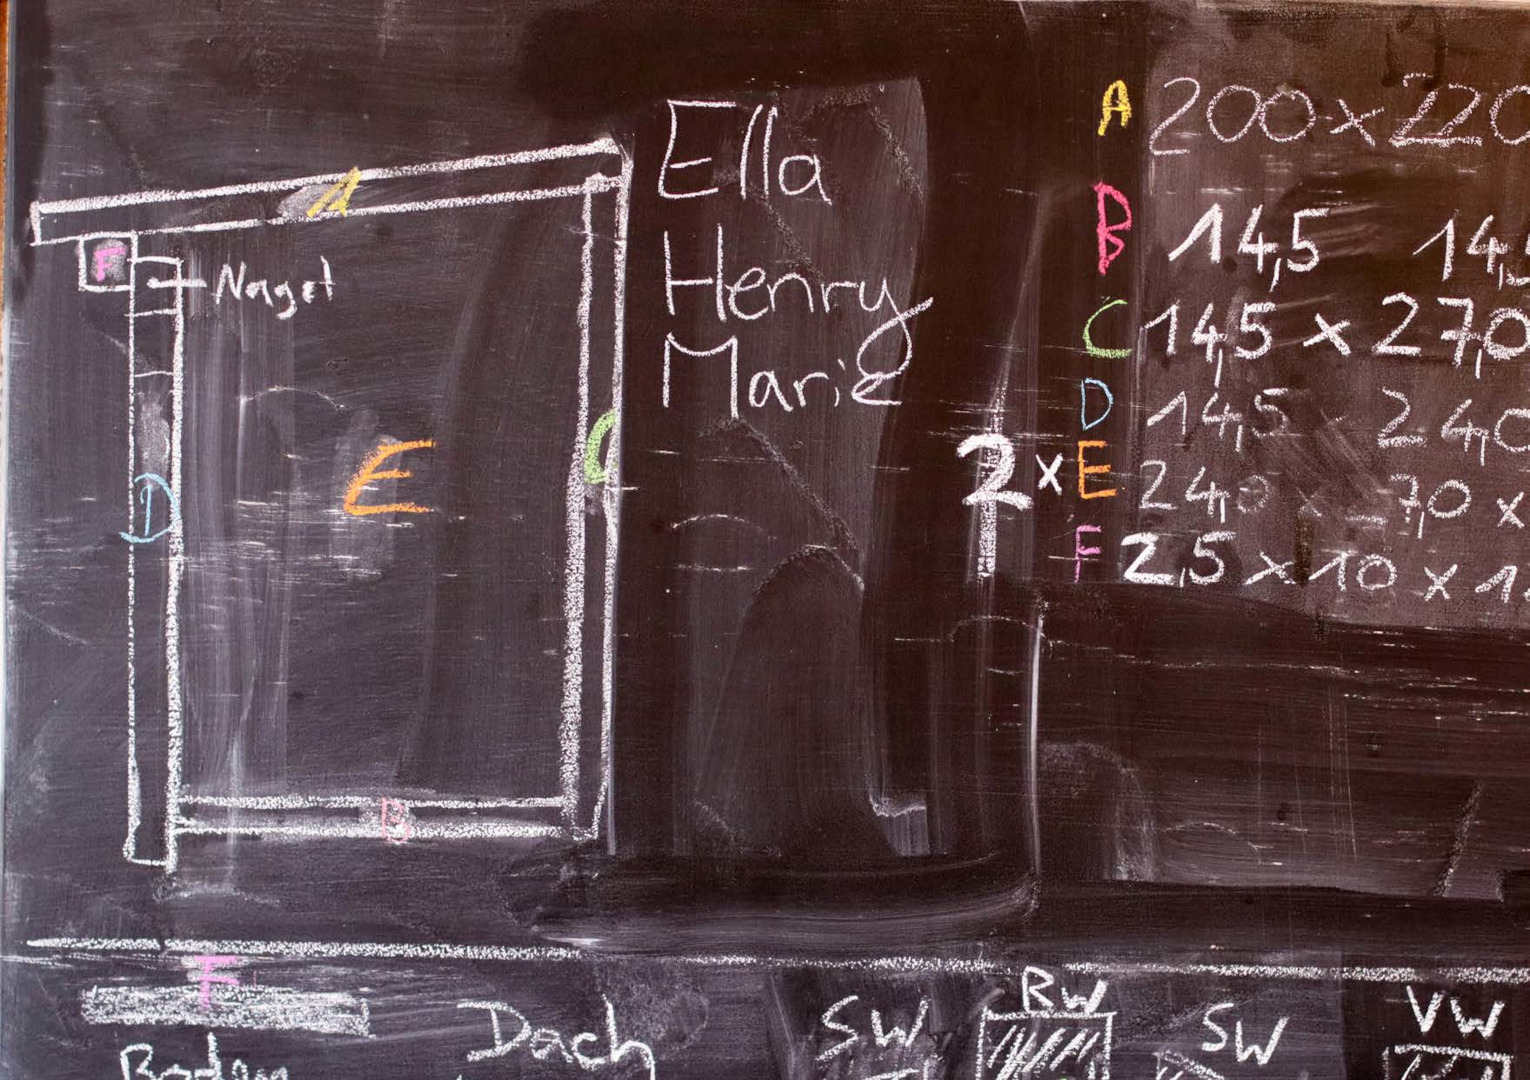 A
F
Nagel
E
C
D
B
Ella
Henry
Marie
A 200 x 220
B 14,5 14,5
C 14,5 x 27,0
D 14,5 - 24,0
2 x E 24,0 x 7,0 x
F 2,5 x 10 x 1
F
Boden
Dach
SW
RW
SW
VW